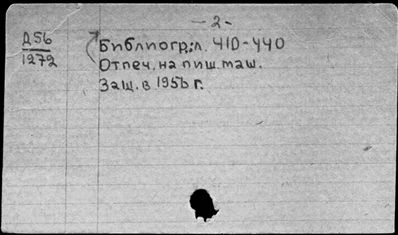 — 2 -
Д56
1272
Библиогр: л. 410-440
Отпеч. на пиш. маш.
Защ. в 1956 г.